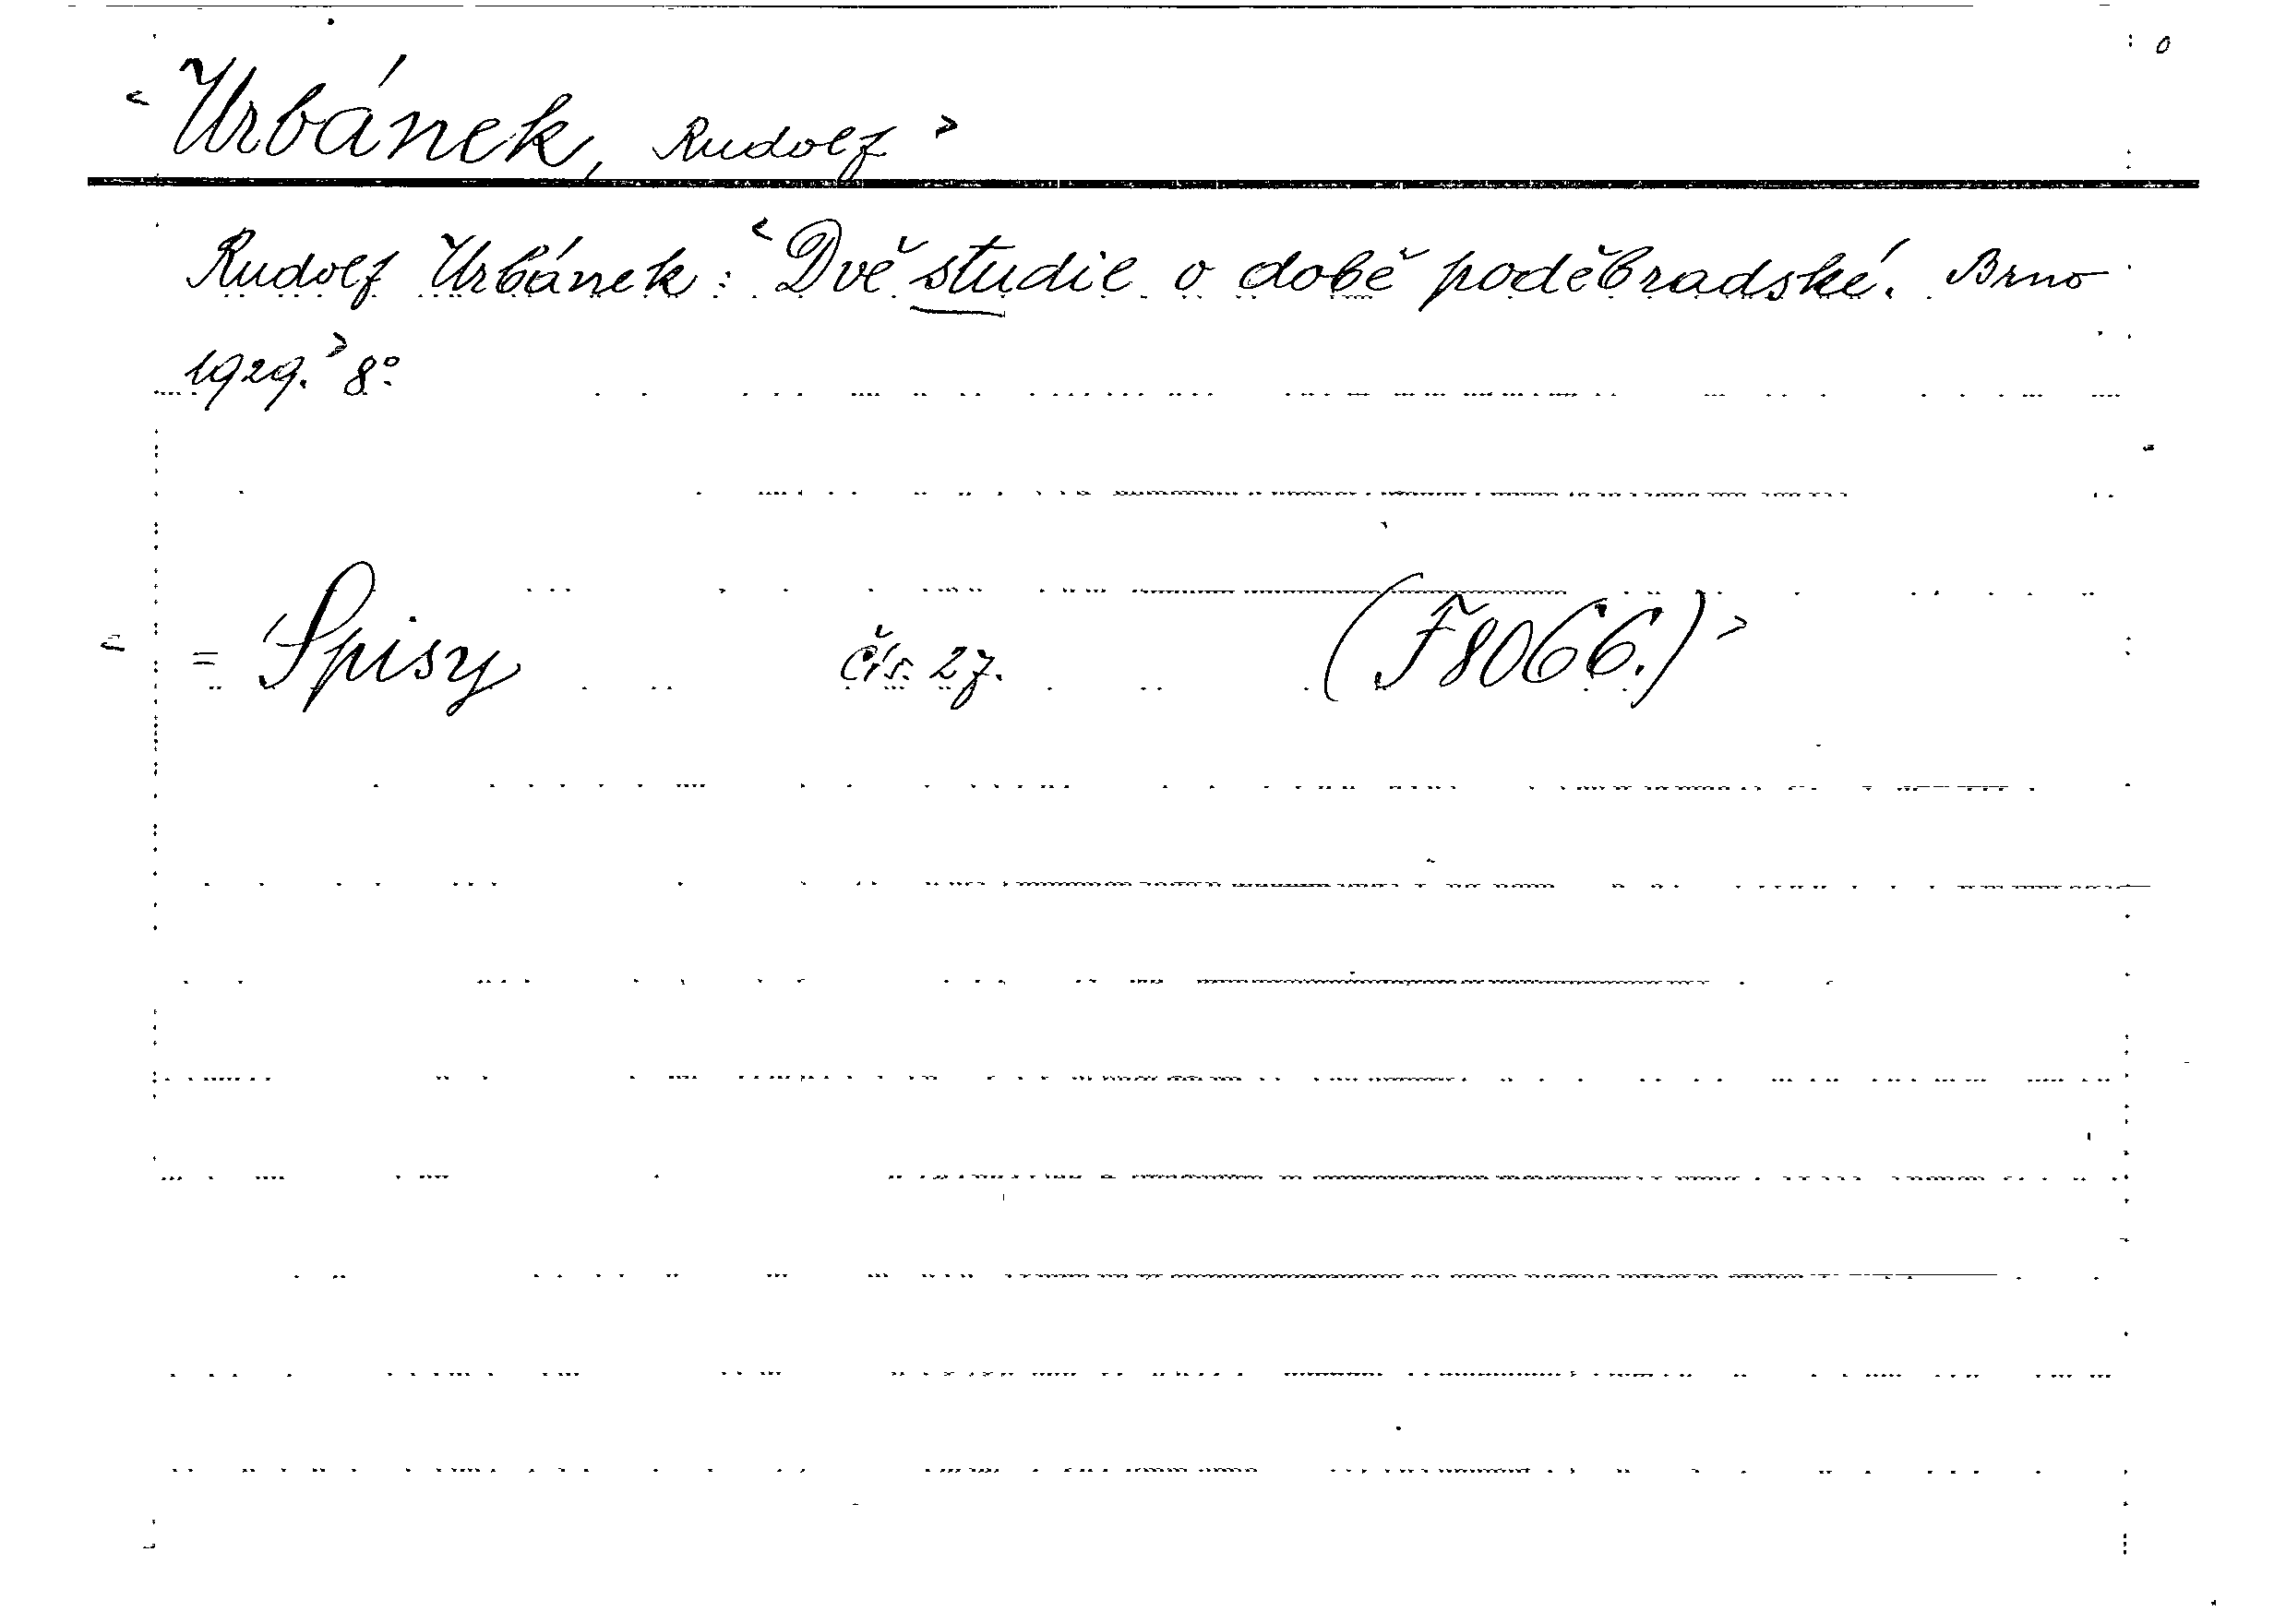 < Urbánek, Rudolf >
Rudolf Urbánek: < Dvě studie o době poděbradské. Brno
1929. > 8°.
< = Spisy čís. 27. (F8066.) >